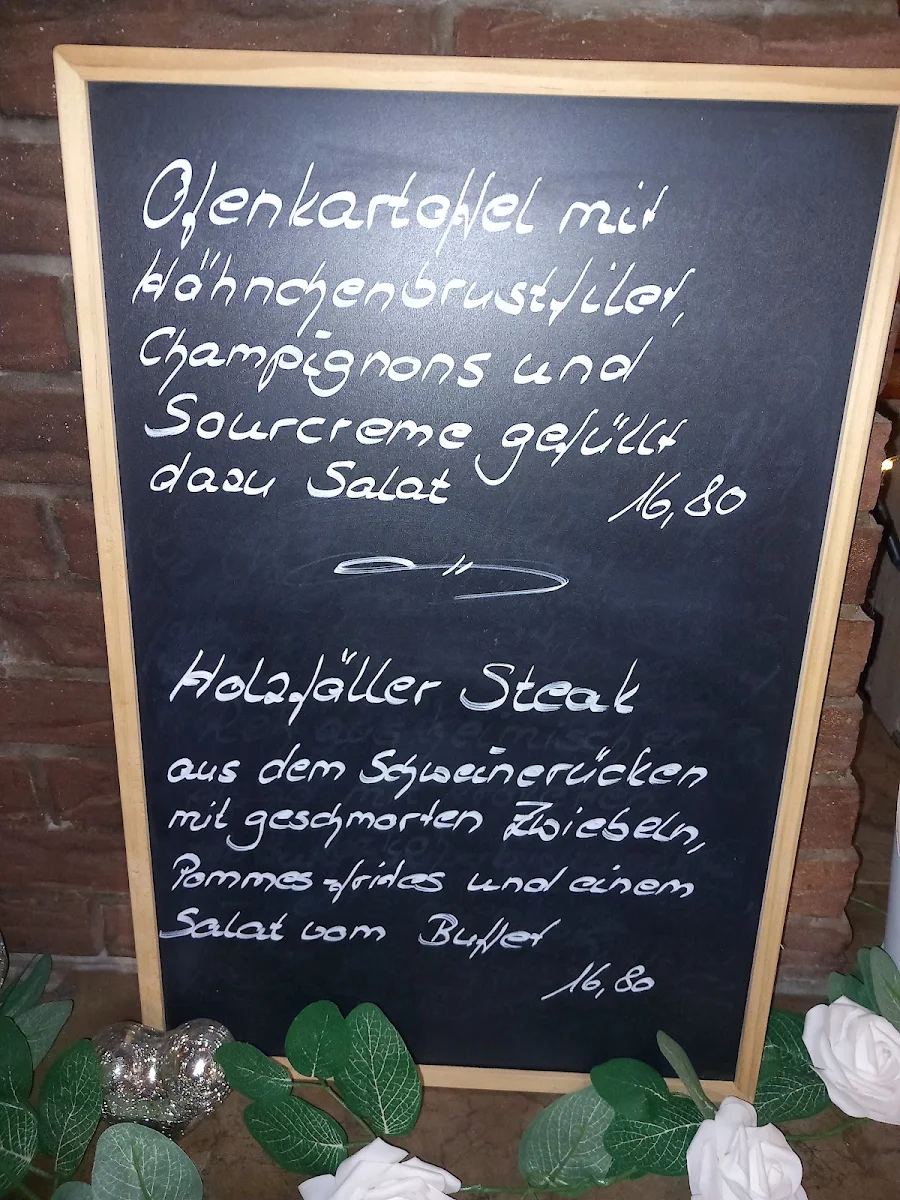 Ofenkartoffel mit
Hähnchenbrustfilet,
Champignons und
Sourcreme gefüllt
dazu Salat 16,80
Holzfäller Steak
aus dem Schweinerücken
mit geschmorten Zwiebeln,
Pommes-frides und einem
Salat vom Buffet
16,80